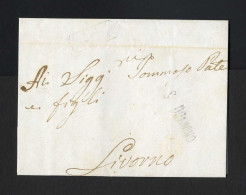 Ai Sigg.ri Tommaso Pate
e figli
Livorno